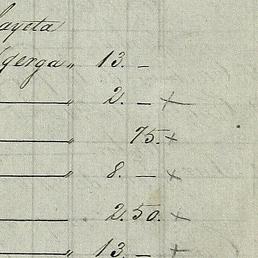 ayeta
gerga „ 13. –
„ 2. – +
„ 75. +
„ 8. – +
„ 2.50. +
„ 13. – +